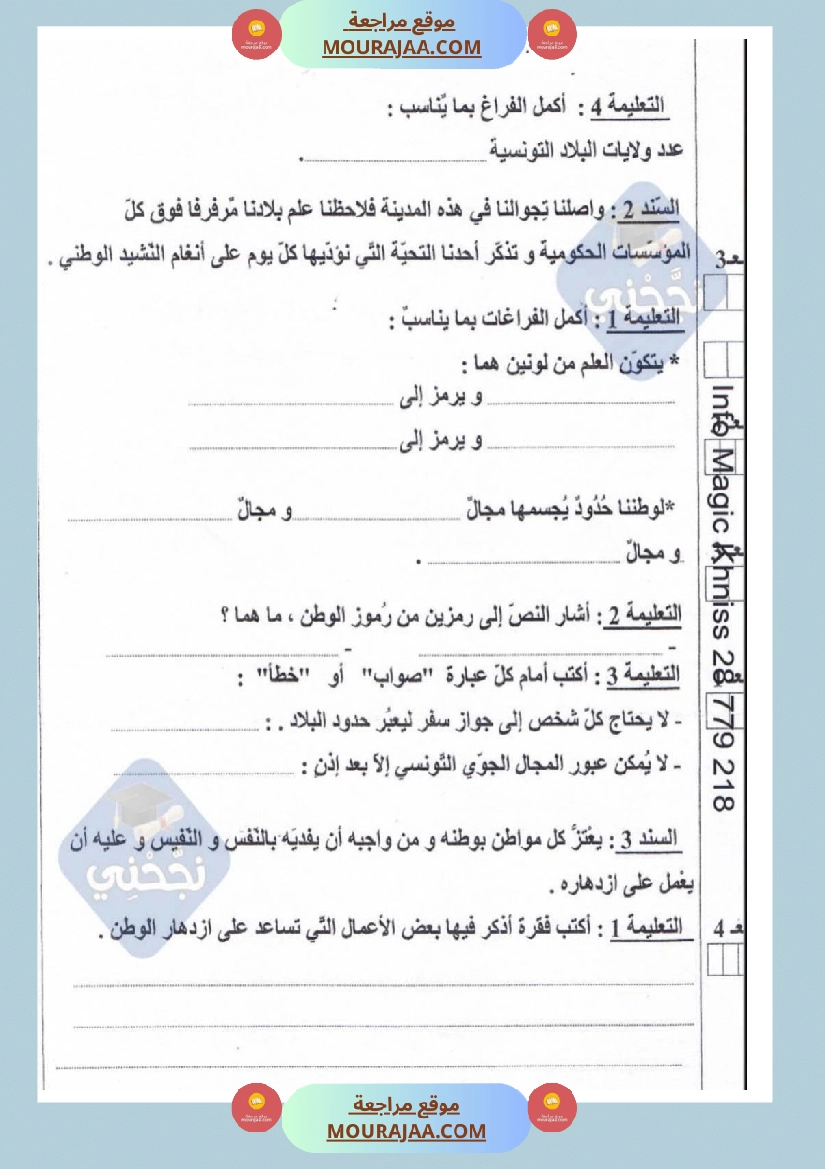 موقع مراجعة
MOURAJAA.COM
التعليمة 4 : أكمل الفراغ بما يُناسب :
عدد ولايات البلاد التونسية .
السّند 2 : واصلنا تجوالنا في هذه المدينة فلاحظنا علم بلادنا مُرفرفا فوق كلّ
المؤسّسات الحكومية و تذكّر أحدنا التحيّة التّي نؤدّيها كلّ يوم على أنغام النّشيد الوطني .
التعليمة 1 : أكمل الفراغات بما يناسبُ :
* يتكوّن العلم من لونين هما :
و يرمز إلى
و يرمز إلى
*لوطننا حُدُودٌ يُجسمها مجالٌ و مجالٌ
و مجالٌ .
التعليمة 2 : أشار النصّ إلى رمزين من رُموز الوطن ، ما هما ؟
- -
التعليمة 3 : أكتب أمام كلّ عبارة "صواب" أو "خطأ" :
- لا يحتاج كلّ شخص إلى جواز سفر ليعبُر حدود البلاد . :
- لا يُمكن عبور المجال الجوّي التّونسي إلاّ بعد إذنٍ :
السند 3 : يعْتَزُّ كل مواطن بوطنه و من واجبه أن يفديَه بالنّفسَ و النّفيس و عليه أن
يعْمل على ازدهاره .
التعليمة 1 : أكتب فقرة أذكر فيها بعض الأعمال التّي تساعد على ازدهار الوطن .
مـع3
مـع 4
Info Magic Khniss 28 779 218
نجّحْني
نجّحْني
موقع مراجعة
MOURAJAA.COM